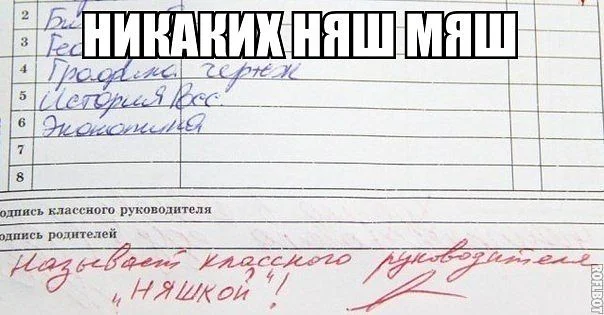 НИКАКИХ НЯШ МЯШ
2
3
4 Графика черчен
5 История Росс
6 Экономика
7
8
одпись классного руководителя
одпись родителей
Называет классного руководителя
„НЯШКОЙ"!
ROFLBOT